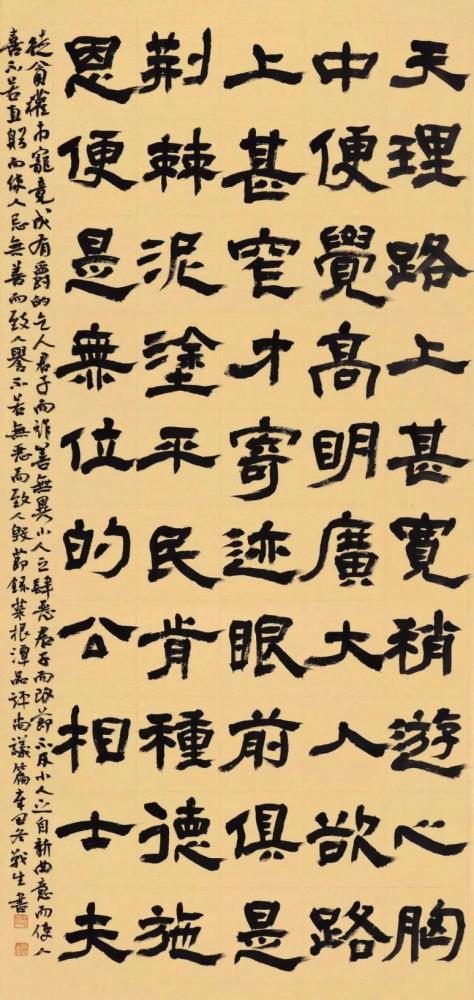 天理路上甚寬稍遊心胸
中便覺高明廣大人欲路
上甚窄才寄迹眼前俱是
荆棘泥塗平民肯種德施
恩便是無位的公相士夫
徒貪權市寵竟成有爵的乞人君子而詐善無異小人之肆惡君子而改節不及小人之自新曲意而使人
喜不若直躬而使人忌無善而致人譽不若無惡而致人毀節錄菜根潭品評尚議篇辛丑冬生書